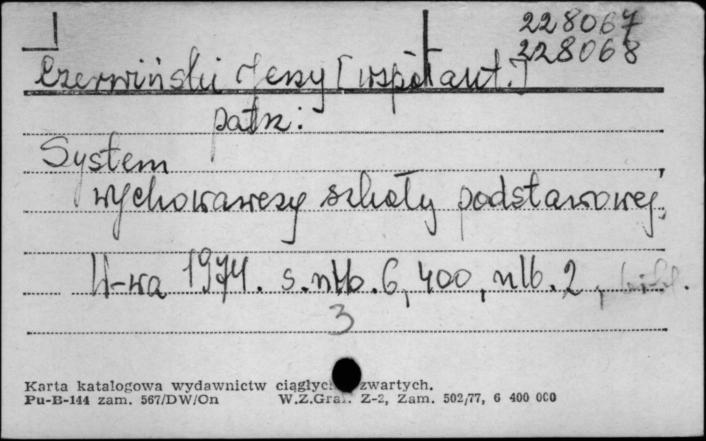 228067
228068
Czerwiński Jerzy [współaut.]
patrz:
System
wychowawczy szkoły podstawowej,
W-wa 1974. s. nlb. 6, 400, nlb. 2, bibl.
3
Karta katalogowa wydawnictw ciągłych zwartych.
Pu-B-144 zam. 567/DW/On W.Z.Graf. Z-2, Zam. 502/77, 6 400 000